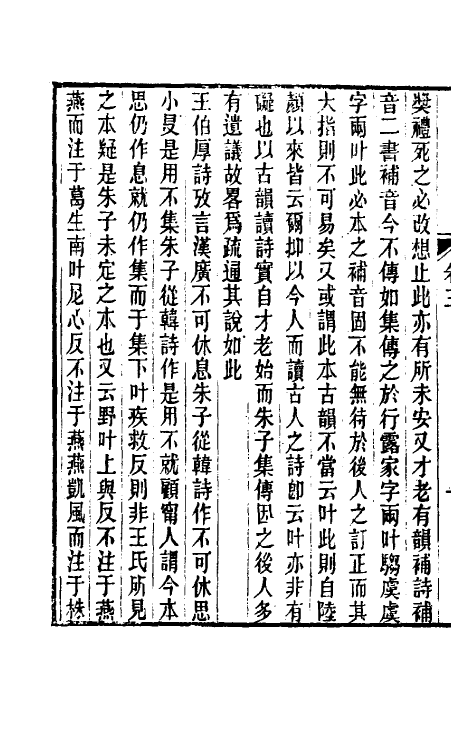 卷三
奬禮死之必改想止此亦有所未安又才老有韻補詩補
音二書補音今不傳如集傳之於行露家字兩叶騶虞虞
字兩叶此必本之補音固不能無待於後人之訂正而其
大指則不可易矣又或謂此本古韻不當云叶此則自陸
顏以來皆云爾抑以今人而讀古人之詩卽云叶亦非有
礙也以古韻讀詩實自才老始而朱子集傳因之後人多
有遺議故畧爲疏通其說如此
王伯厚詩攷言漢廣不可休息朱子從韓詩作不可休思
小旻是用不集朱子從韓詩作是用不就顧甯人謂今本
思仍作息就仍作集而于集下叶疾救反則非王氏所見
之本疑是朱子未定之本也又云野叶上與反不注于燕
燕而注于葛生南叶尼心反不注于燕燕凱風而注于株